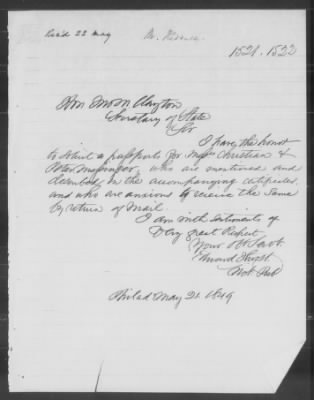 Rec'd 22 May
1521. 1522
Hon J M Clayton
Secretary of State
Sir
I have the honor
to solicit a passports for Messrs Christian &
Peter who are mentioned and
described in the accompanying certificates,
and who are anxious to receive the same
by return of Mail.
I am with sentiments of
Very great Respect
Your Ob Servt
Philad May 21. 1849